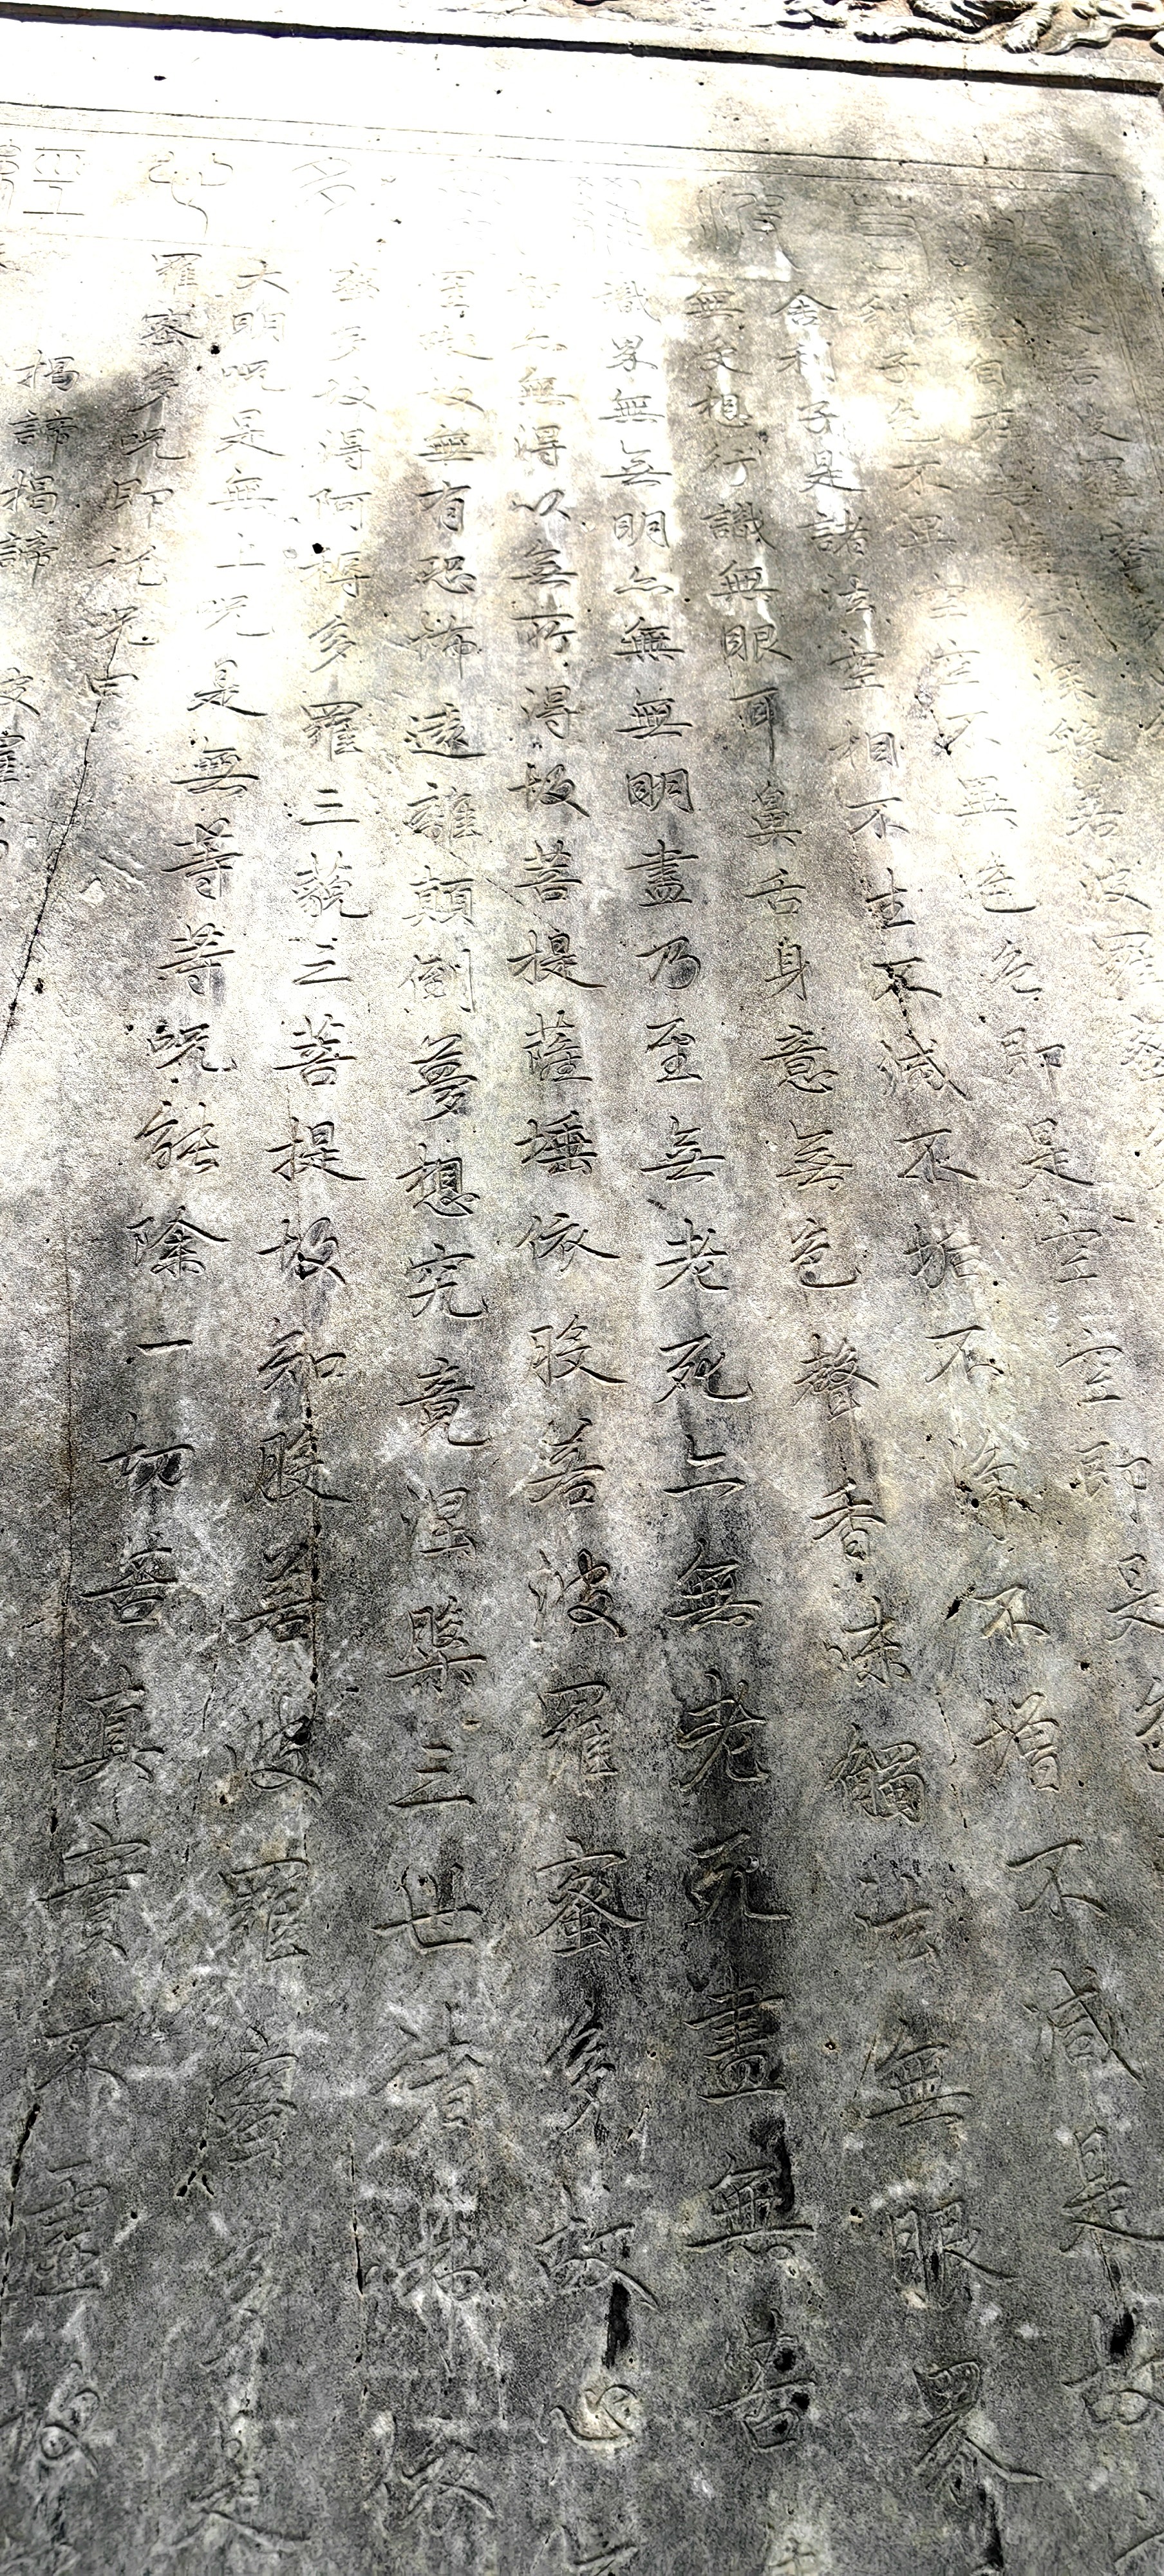 般若波羅蜜多心經
般若波羅蜜多
觀自在菩薩行深般若波羅蜜多
利子色不異空空不異色色即是空空即是色
舍利子是諸法空相不生不滅不垢不淨不增不減是故
無受想行識無眼耳鼻舌身意無色聲香味觸法無眼界
識界無無明亦無無明盡乃至無老死亦無老死盡無苦
智亦無得以無所得故菩提薩埵依般若波羅蜜多故心
罣礙故無有恐怖遠離顛倒夢想究竟涅槃三世諸佛依
蜜多故得阿耨多羅三藐三菩提故知般若波羅蜜多是
大明呪是無上呪是無等等呪能除一切苦真實不虛故
羅蜜多呪即說呪曰
揭諦揭諦